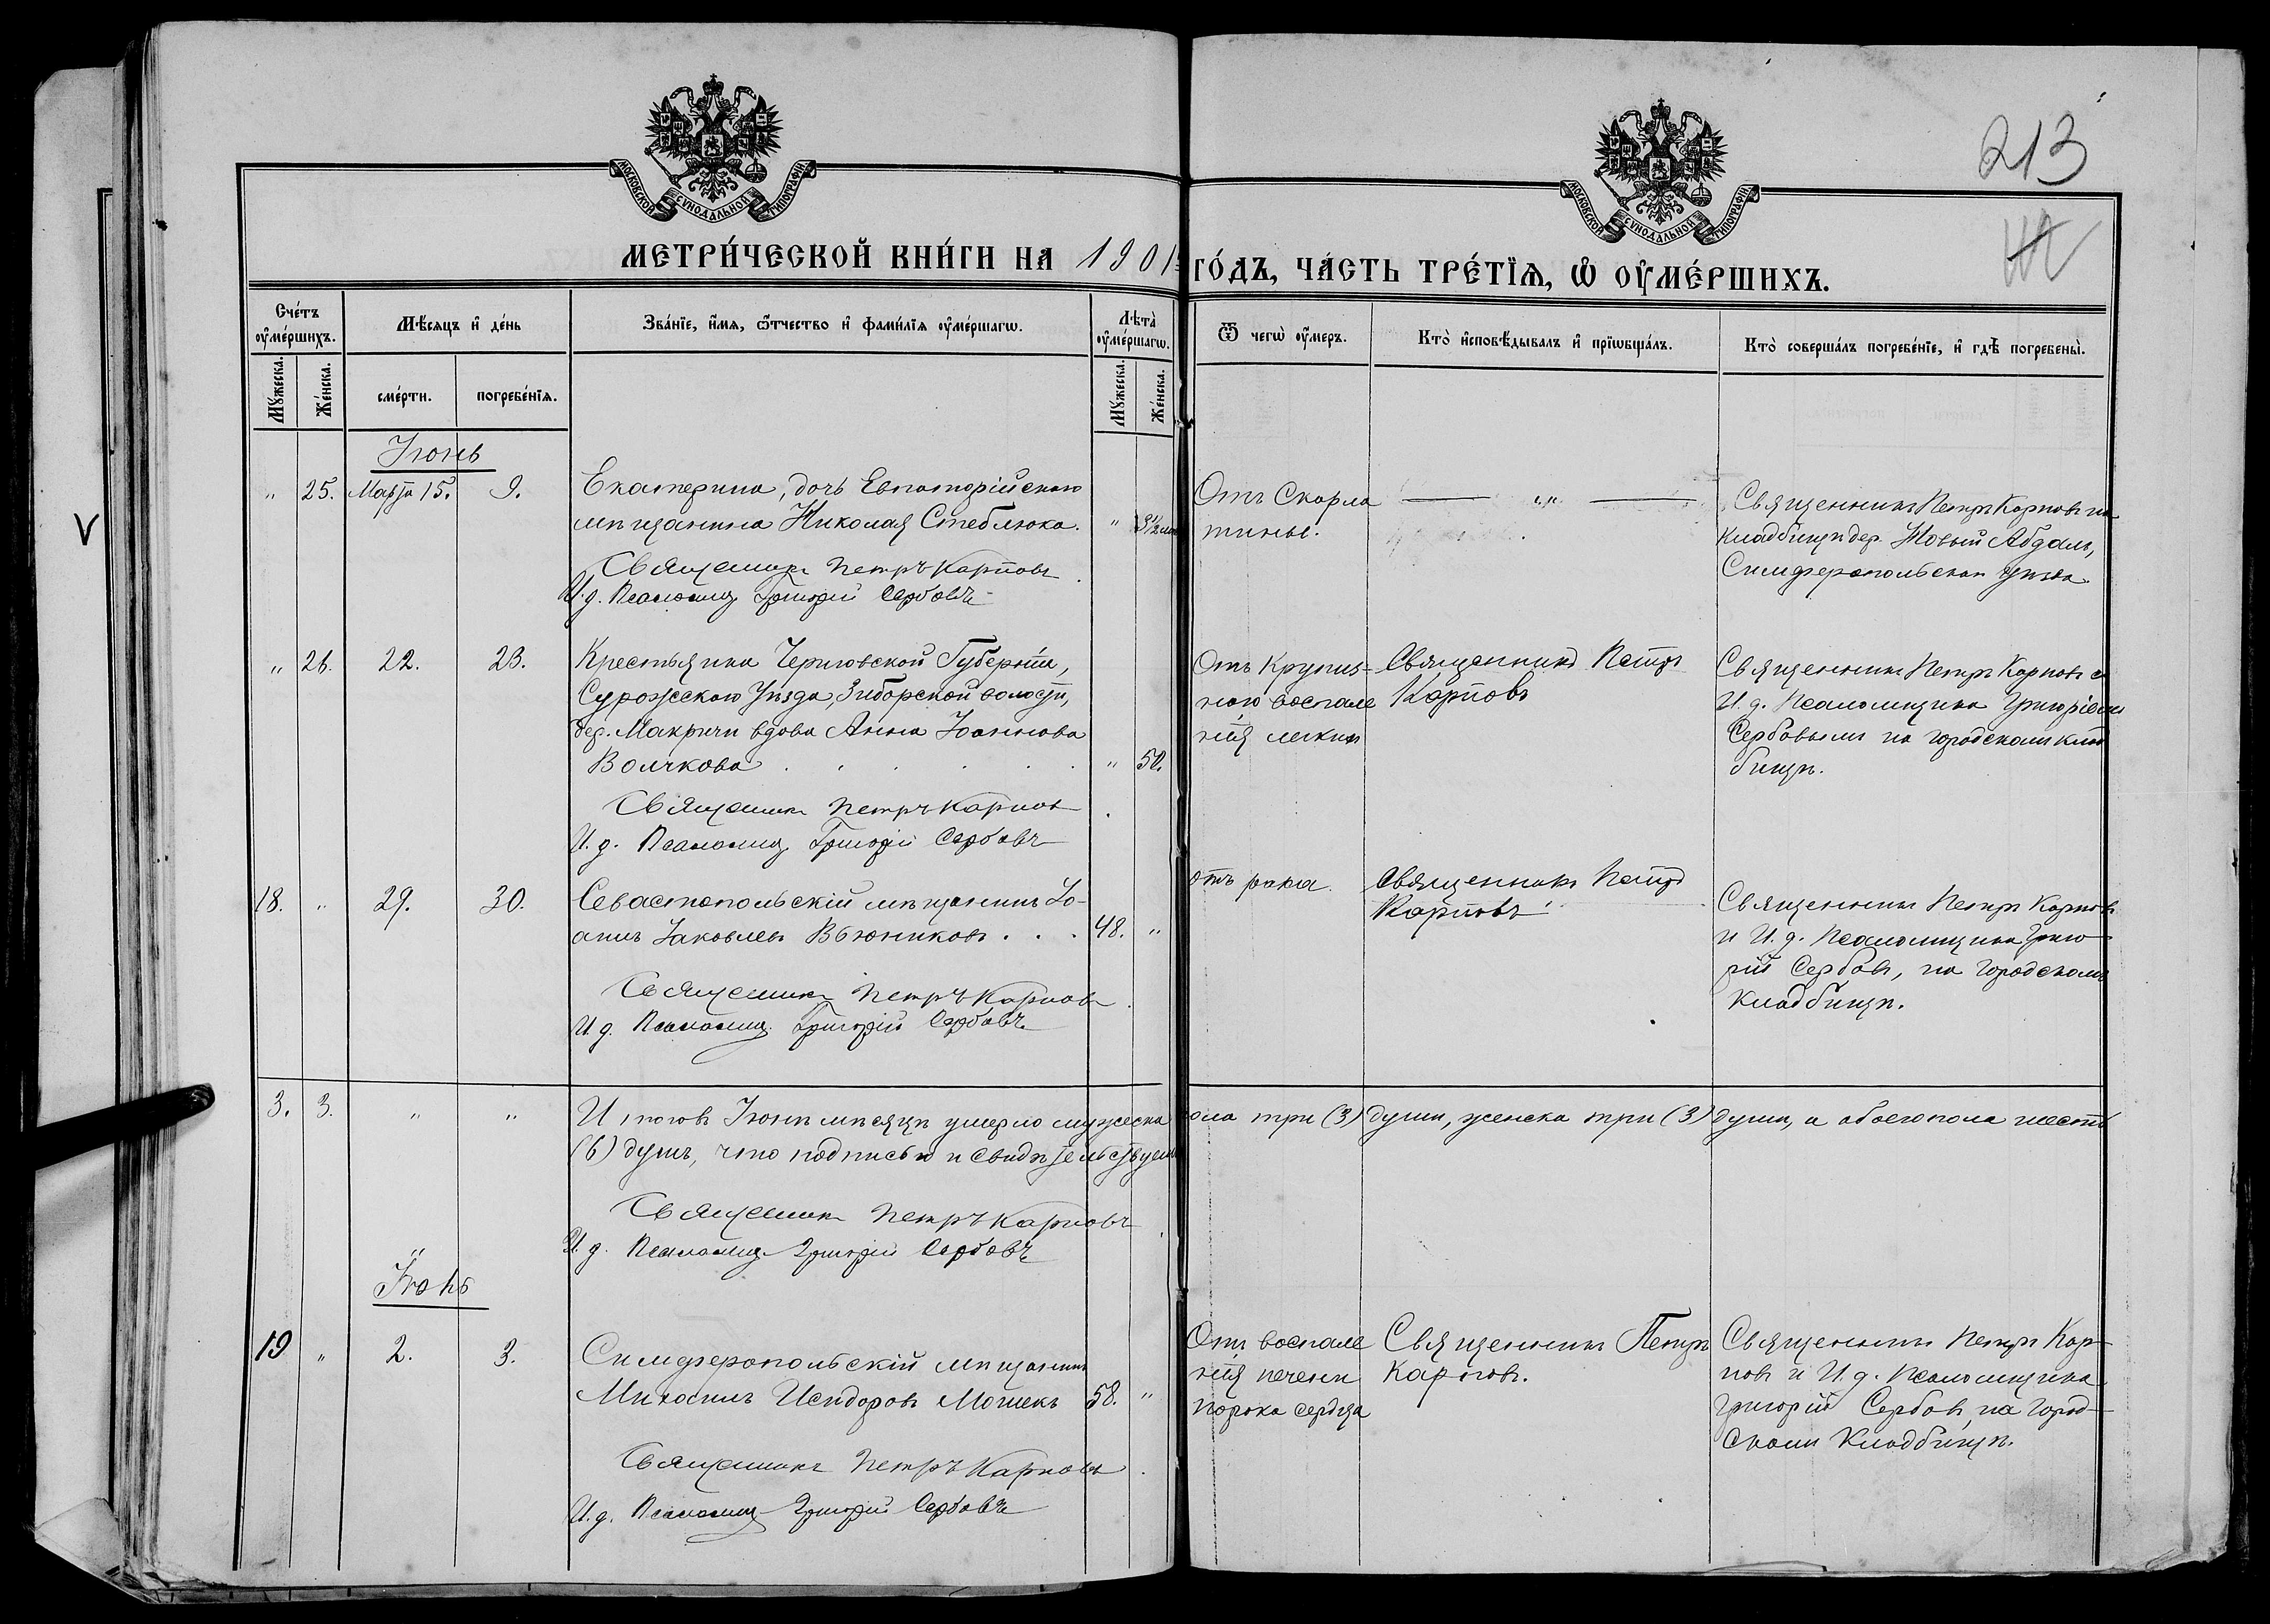 МОСКОВСКОЙ СУНОДАЛЬНОЙ ТИПОГРАФІИ
МОСКОВСКОЙ СУНОДАЛЬНОЙ ТИПОГРАФІИ
213
МЕТРИ́ЧЕСКОЙ КНИ́ГИ НА 1901 ГО́ДЪ, ЧА́СТЬ ТРЕ́ТІѦ, Ѡ ОУМЕ́РШИХЪ.
Сче́тъ оуме́ршихъ.
Мѣ́сяцъ и де́нь
Зва́нїе, и́мѧ, ѻ́тчество и фами́лїѧ оуме́ршагѡ.
Лѣта̀ оуме́ршагѡ.
Ѿ чегѡ̀ оу́меръ.
Кто̀ и҆сповѣ́дывалъ и҆ прїѡбща́лъ.
Кто̀ соверша́лъ погребе́нїе, и҆ гдѣ̀ погребены̀.
Му́жеска.
Же́нска.
сме́рти.
погребе́нїѧ.
Му́жеска.
Же́нска.
Іюнь
" 25. Марта 15. 9.
Екатерина, дочь Евпаторійскаго
мѣщанина Николая Стеблюка. "
Священникъ Петръ Карповъ
И.д. Псаломщ Григорій Сербовъ
Отъ Скарла
тины.
— „ —
Священникъ Петръ Карповъ на
кладбищѣ дер. Новый Абдалъ,
Симферопольскаго уѣзда.
" 26. 22. 23.
Крестьянка Черниговской Губерніи,
Суражскаго Уѣзда, Зиборской волости,
дер. Макричи вдова Анна Іоаннова
Волчкова . . . . . " 52.
Священникъ Петръ Карповъ
И.д. Псаломщ Григорій Сербовъ
Отъ Крупоз-
наго воспале
нія легкихъ
Священникъ Петръ
Карповъ
Священникъ Петръ Карповъ съ
И.д. Псаломщика Григоріемъ
Сербовымъ на городскомъ клад
бищѣ.
18. " 29. 30.
Севастопольскій мѣщанинъ Іо-
аннъ Іаковлевъ Вьюниковъ . . . 48. "
Священникъ Петръ Карповъ
И.д. Псаломщ. Григорій Сербовъ
отъ рака.
Священникъ Петръ
Карповъ
Священникъ Петръ Карповъ
и И.д. Псаломщика Григо
рій Сербовъ, на городскомъ
кладбищѣ.
3. 3. " "
Итого въ Іюнѣ мѣсяцѣ умерло мужеска пола три (3) души, женска три (3) души, а обоего пола шесть
(6) душъ, что подписью и свидѣтельствуемъ
Священникъ Петръ Карповъ
И.д. Псаломщ Григорій Сербовъ
19 " 2. 3.
Симферопольскій мѣщанинъ
Михаилъ Исидоровъ Мошекъ 58. "
Священникъ Петръ Карповъ
И.д. Псаломщ Григорій Сербовъ
Отъ воспале
нія печени
порока сердца
Священникъ Петръ
Карповъ.
Священникъ Петръ Кар-
повъ и И.д. Псаломщика
Григорій Сербовъ, на город-
скомъ Кладбищѣ.